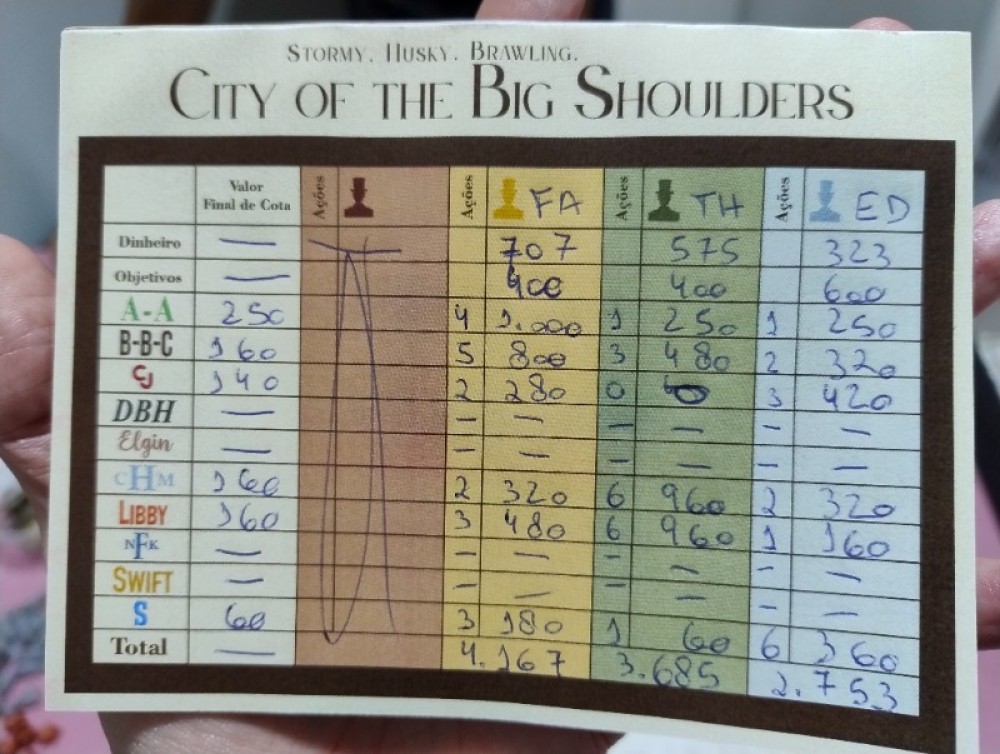 STORMY. HUSKY. BRAWLING.
CITY OF THE BIG SHOULDERS
Valor Final de Cota Ações Ações FA Ações TH Ações ED
Dinheiro — 707 575 323
Objetivos — 400 400 600
A-A 250 4 1.000 1 250 1 250
B-B-C 160 5 800 3 480 2 320
CJ 140 2 280 0 0 3 420
DBH — — — — — — —
Elgin — — — — — — —
CHM 160 2 320 6 960 2 320
LIBBY 160 3 480 6 960 1 160
NFK — — — — — — —
SWIFT — — — — — — —
S 60 3 180 1 60 6 360
Total — 4.167 3.685 2.753